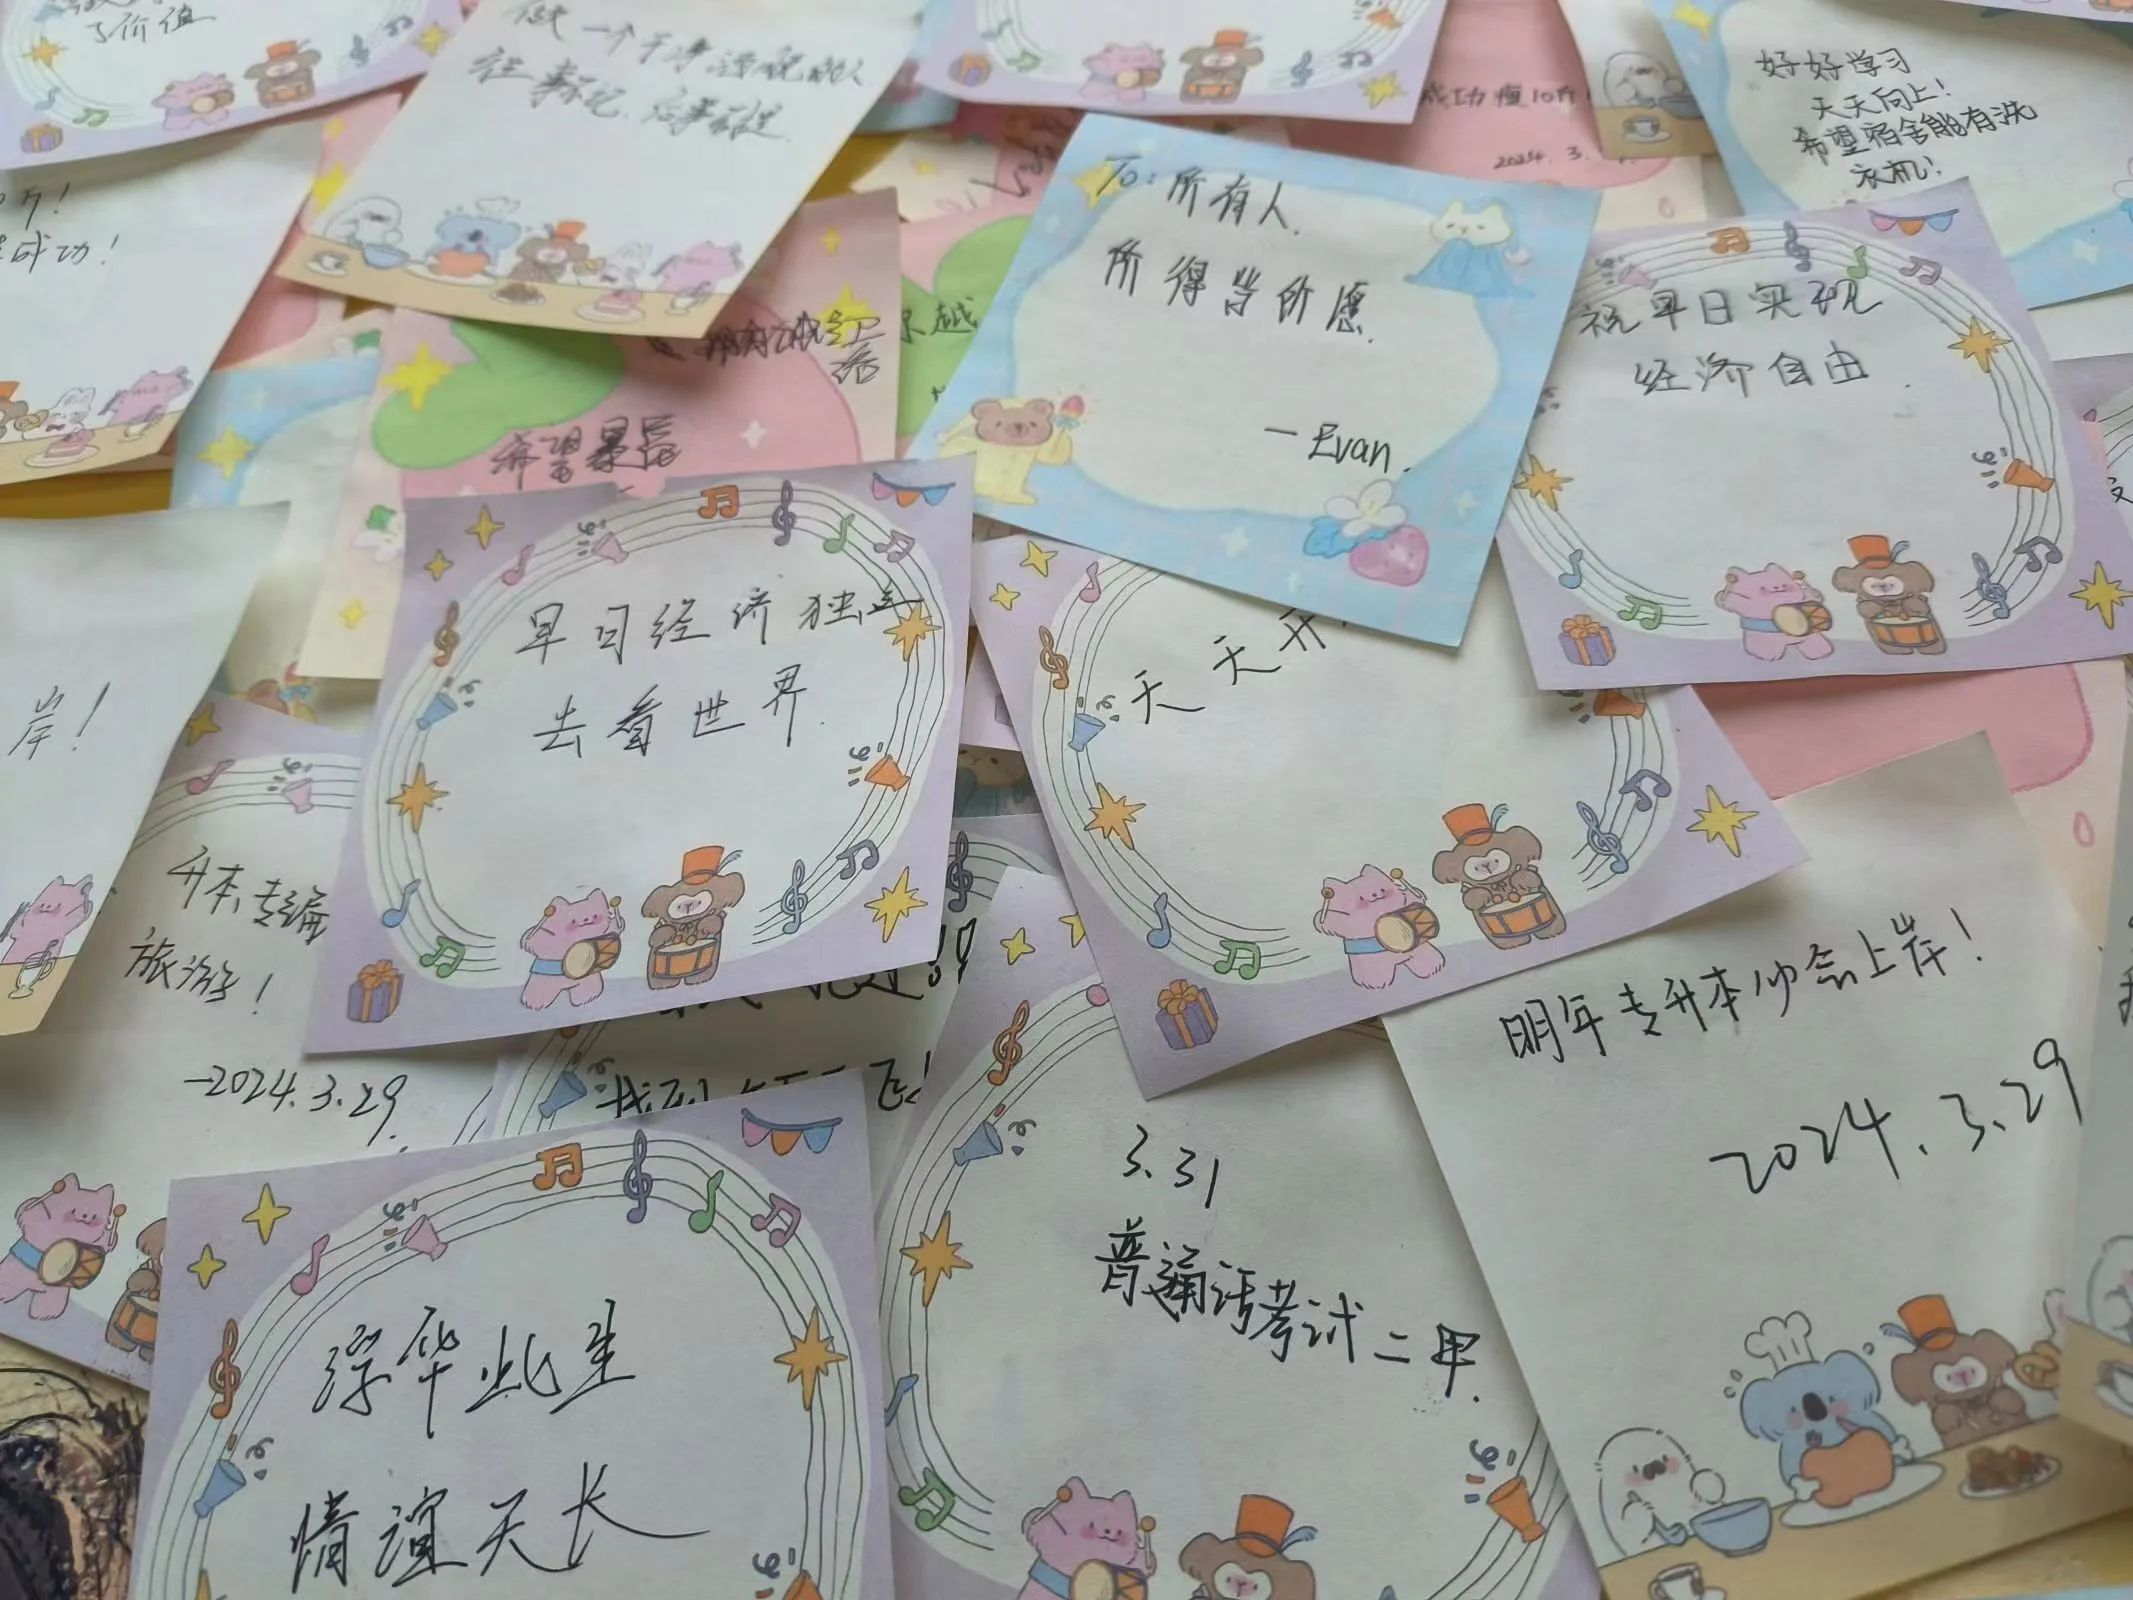 了价值
做一个干净透亮的人
成功瘦10斤!
2024.3.
好好学习
天天向上!
希望宿舍能有洗
衣机!
斤!
成功!
To:所有人.
所得皆所愿.
-Evan.
祝早日实现
经济自由.
希望暴富
早日经济独立
去看世界.
天天开
岸!
升本,专编
旅游!
-2024.3.29.
明年专升本必会上岸!
2024.3.29
3.31
普通话考试二甲.
浮华此生
情谊天长